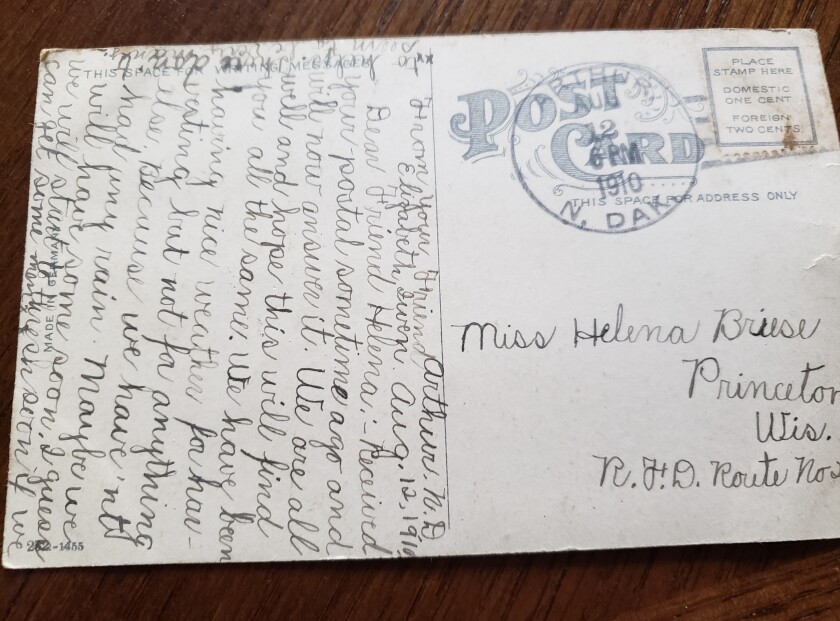 THIS SPACE FOR WRITING MESSAGES
Arthur, N. D.
Aug. 12, 1910
Dear Friend Helena:- Received
your postal sometime ago and
will now answer it. We are all
well and hope this will find
you all the same. We have been
having nice weather for har-
vesting but not for anything
else, because we have'nt
had any rain. Maybe we
will have some soon. I guess
we will start to thresh soon if we
can get some men
seem to be very many.
From your Friend
Elizabeth Iwen.
MADE IN GERMANY
252-1455
POST CARD
ARTHUR
AUG
12
6 PM
1910
N. DAK.
PLACE
STAMP HERE
DOMESTIC
ONE CENT
FOREIGN
TWO CENTS
THIS SPACE FOR ADDRESS ONLY
Miss Helena Briese
Princeton
Wis.
R.F.D. Route No